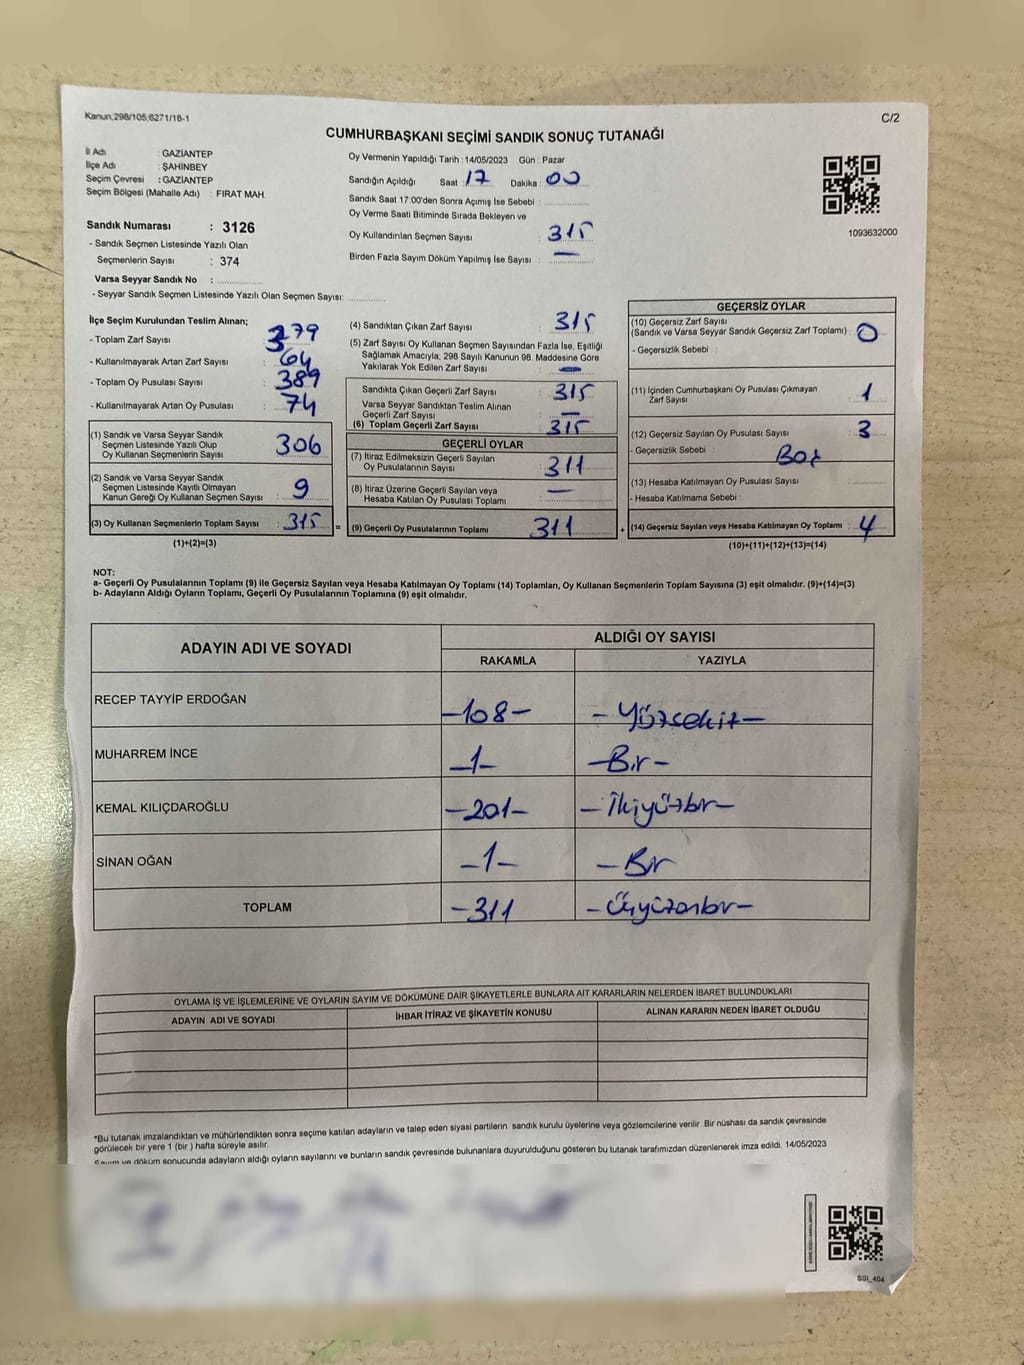 Kanun;298/105,6271/18-1
C/2
CUMHURBAŞKANI SEÇİMİ SANDIK SONUÇ TUTANAĞI
İl Adı : GAZİANTEP
İlçe Adı : ŞAHİNBEY
Seçim Çevresi : GAZİANTEP
Seçim Bölgesi (Mahalle Adı) : FIRAT MAH.
Sandık Numarası : 3126
- Sandık Seçmen Listesinde Yazılı Olan
Seçmenlerin Sayısı : 374
Varsa Seyyar Sandık No :
- Seyyar Sandık Seçmen Listesinde Yazılı Olan Seçmen Sayısı:
Oy Vermenin Yapıldığı Tarih : 14/05/2023 Gün : Pazar
Sandığın Açıldığı Saat : 17 Dakika : 00
Sandık Saat 17:00'den Sonra Açımış İse Sebebi :
Oy Verme Saati Bitiminde Sırada Bekleyen ve
Oy Kullandırılan Seçmen Sayısı : 315
Birden Fazla Sayım Döküm Yapılmış İse Sayısı : —
1093632000
İlçe Seçim Kurulundan Teslim Alınan;
- Toplam Zarf Sayısı : 379
- Kullanılmayarak Artan Zarf Sayısı : 64
- Toplam Oy Pusulası Sayısı : 389
- Kullanılmayarak Artan Oy Pusulası : 74
(1) Sandık ve Varsa Seyyar Sandık
Seçmen Listesinde Yazılı Olup
Oy Kullanan Seçmenlerin Sayısı 306
(2) Sandık ve Varsa Seyyar Sandık
Seçmen Listesinde Kayıtlı Olmayan
Kanun Gereği Oy Kullanan Seçmen Sayısı 9
(3) Oy Kullanan Seçmenlerin Toplam Sayısı : 315 =
(1)+(2)=(3)
(4) Sandıktan Çıkan Zarf Sayısı : 315
(5) Zarf Sayısı Oy Kullanan Seçmen Sayısından Fazla İse, Eşitliği
Sağlamak Amacıyla; 298 Sayılı Kanunun 98. Maddesine Göre
Yakılarak Yok Edilen Zarf Sayısı : —
Sandıkta Çıkan Geçerli Zarf Sayısı : 315
Varsa Seyyar Sandıktan Teslim Alınan
Geçerli Zarf Sayısı : —
(6) Toplam Geçerli Zarf Sayısı : 315
GEÇERLİ OYLAR
(7) İtiraz Edilmeksizin Geçerli Sayılan
Oy Pusulalarının Sayısı : 311
(8) İtiraz Üzerine Geçerli Sayılan veya
Hesaba Katılan Oy Pusulası Toplamı : —
(9) Geçerli Oy Pusulalarının Toplamı 311 +
GEÇERSİZ OYLAR
(10) Geçersiz Zarf Sayısı
(Sandık ve Varsa Seyyar Sandık Geçersiz Zarf Toplamı) : 0
- Geçersizlik Sebebi :
(11) İçinden Cumhurbaşkanı Oy Pusulası Çıkmayan
Zarf Sayısı : 1
(12) Geçersiz Sayılan Oy Pusulası Sayısı : 3
- Geçersizlik Sebebi : Boş
(13) Hesaba Katılmayan Oy Pusulası Sayısı :
- Hesaba Katılmama Sebebi :
(14) Geçersiz Sayılan veya Hesaba Katılmayan Oy Toplamı : 4
(10)+(11)+(12)+(13)=(14)
NOT:
a- Geçerli Oy Pusulalarının Toplamı (9) ile Geçersiz Sayılan veya Hesaba Katılmayan Oy Toplamı (14) Toplamları, Oy Kullanan Seçmenlerin Toplam Sayısına (3) eşit olmalıdır. (9)+(14)=(3)
b- Adayların Aldığı Oyların Toplamı, Geçerli Oy Pusulalarının Toplamına (9) eşit olmalıdır.
ADAYIN ADI VE SOYADI
ALDIĞI OY SAYISI
RAKAMLA YAZIYLA
RECEP TAYYİP ERDOĞAN -108- -Yüzsekiz-
MUHARREM İNCE -1- -Bir-
KEMAL KILIÇDAROĞLU -201- -İkiyüzbir-
SİNAN OĞAN -1- -Bir
TOPLAM -311 -Üçyüzonbir-
OYLAMA İŞ VE İŞLEMLERİNE VE OYLARIN SAYIM VE DÖKÜMÜNE DAİR ŞİKAYETLERLE BUNLARA AİT KARARLARIN NELERDEN İBARET BULUNDUKLARI
ADAYIN ADI VE SOYADI İHBAR İTİRAZ VE ŞİKAYETİN KONUSU ALINAN KARARIN NEDEN İBARET OLDUĞU
*Bu tutanak imzalandıktan ve mühürlendikten sonra seçime katılan adayların ve talep eden siyasi partilerin sandık kurulu üyelerine veya gözlemcilerine verilir. Bir nüshası da sandık çevresinde
görülecek bir yere 1 (bir) hafta süreyle asılır.
Sayım ve döküm sonucunda adayların aldığı oyların sayılarını ve bunların sandık çevresinde bulunanlara duyurulduğunu gösteren bu tutanak tarafımızdan düzenlenerek imza edildi. 14/05/2023
SSI_404